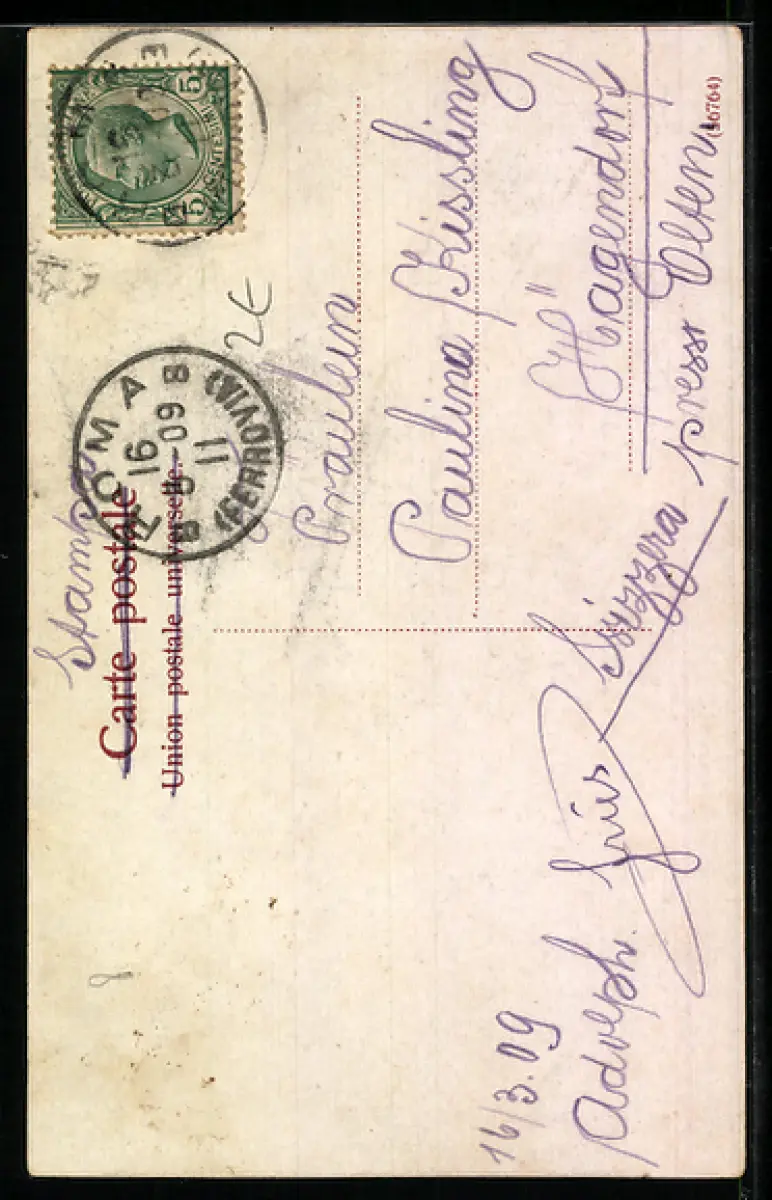 Stampe
Carte postale
Union postale universelle.
5 5
CENTESIMI
ROMA
16
3 09
11
(FERROVIA)
2€
Fräulein
Paulina Kissling
Hägendorf
presso Olten
Svizzera
16/3.09
Adolph.
(36764)